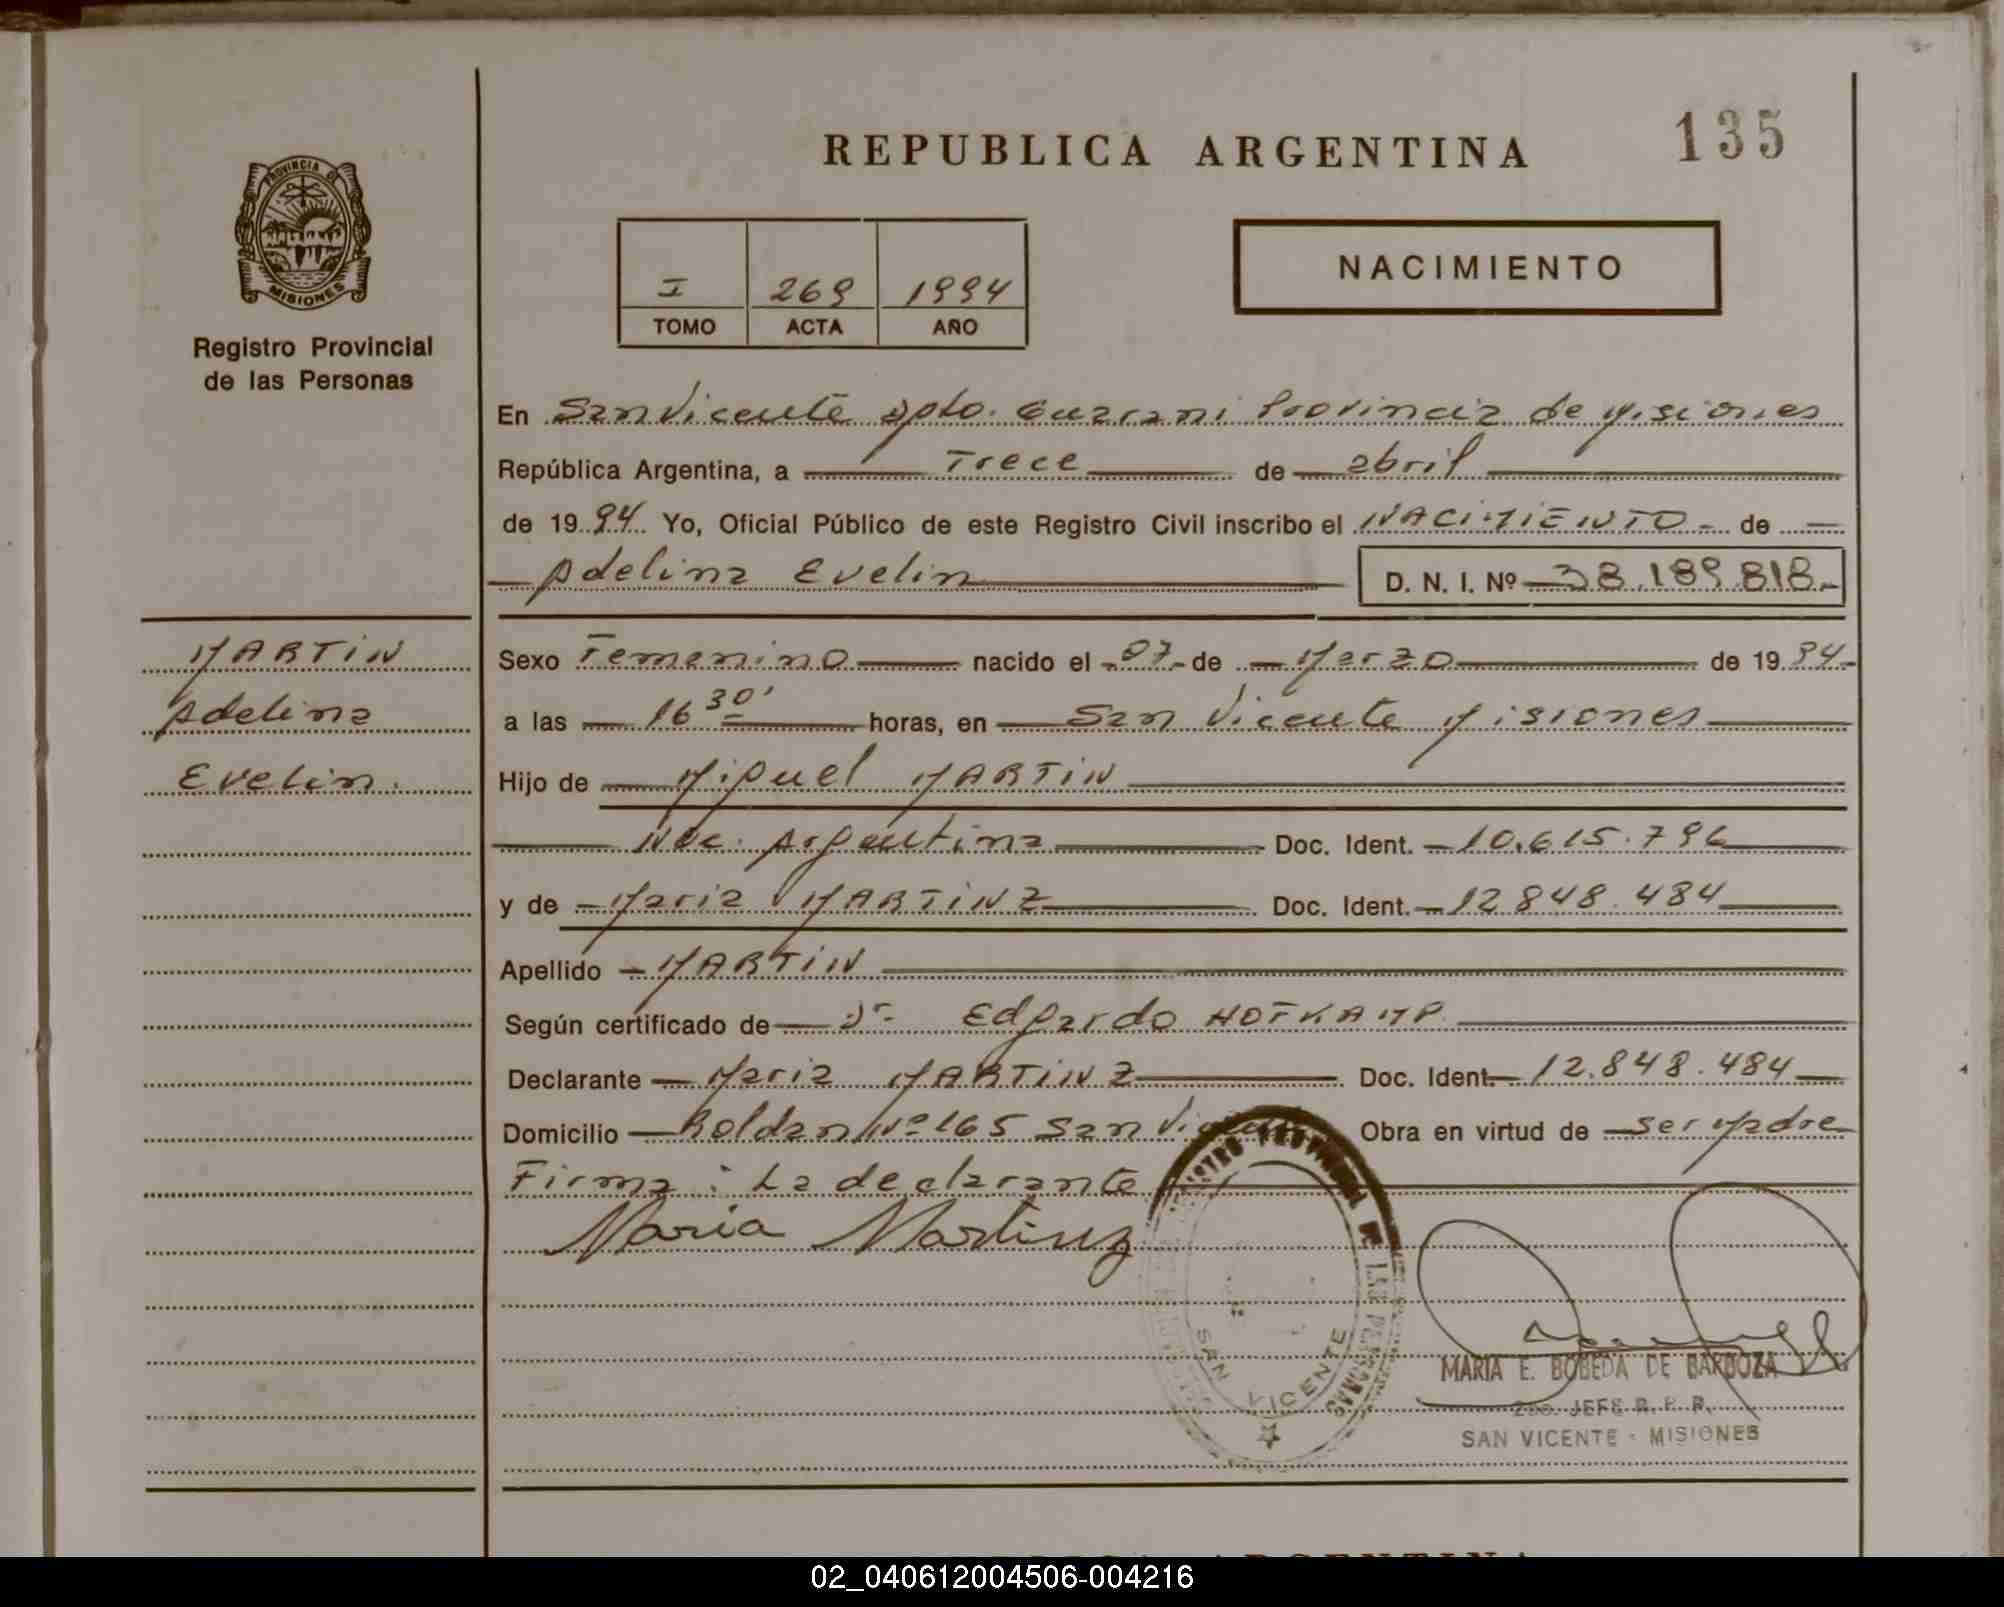 135
REPUBLICA ARGENTINA
PROVINCIA DE
MISIONES
Registro Provincial
de las Personas
NACIMIENTO
I 269 1994
TOMO ACTA AÑO
En San Vicente Dpto. Guarani Provincia de Misiones
República Argentina, a Trece de abril
de 1994 Yo, Oficial Público de este Registro Civil inscribo el NACIMIENTO de
Adelina Evelin D. N. I. Nº 38.189.818.-
MARTIN
Adelina
Evelin.
Sexo Femenino nacido el 07 de Marzo de 1994
a las 16 30' horas, en San Vicente Misiones
Hijo de Miguel MARTIN
Nac. Argentina Doc. Ident. 10.615.796
y de Maria MARTINZ Doc. Ident. 12.848.484
Apellido MARTIN
Según certificado de Dr Edgardo HOFKAMP.
Declarante Maria MARTINZ Doc. Ident. 12.848.484
Domicilio Roldan Nº 165 San Vicente Obra en virtud de ser Madre
Firma: La declarante
Maria Martinz
REGISTRO PROVINCIAL DE LAS PERSONAS
SAN VICENTE
MARIA E. BOBEDA DE BARBOZA
2do. JEFE R. P. P.
SAN VICENTE - MISIONES
ARGENTINA
02_040612004506-004216